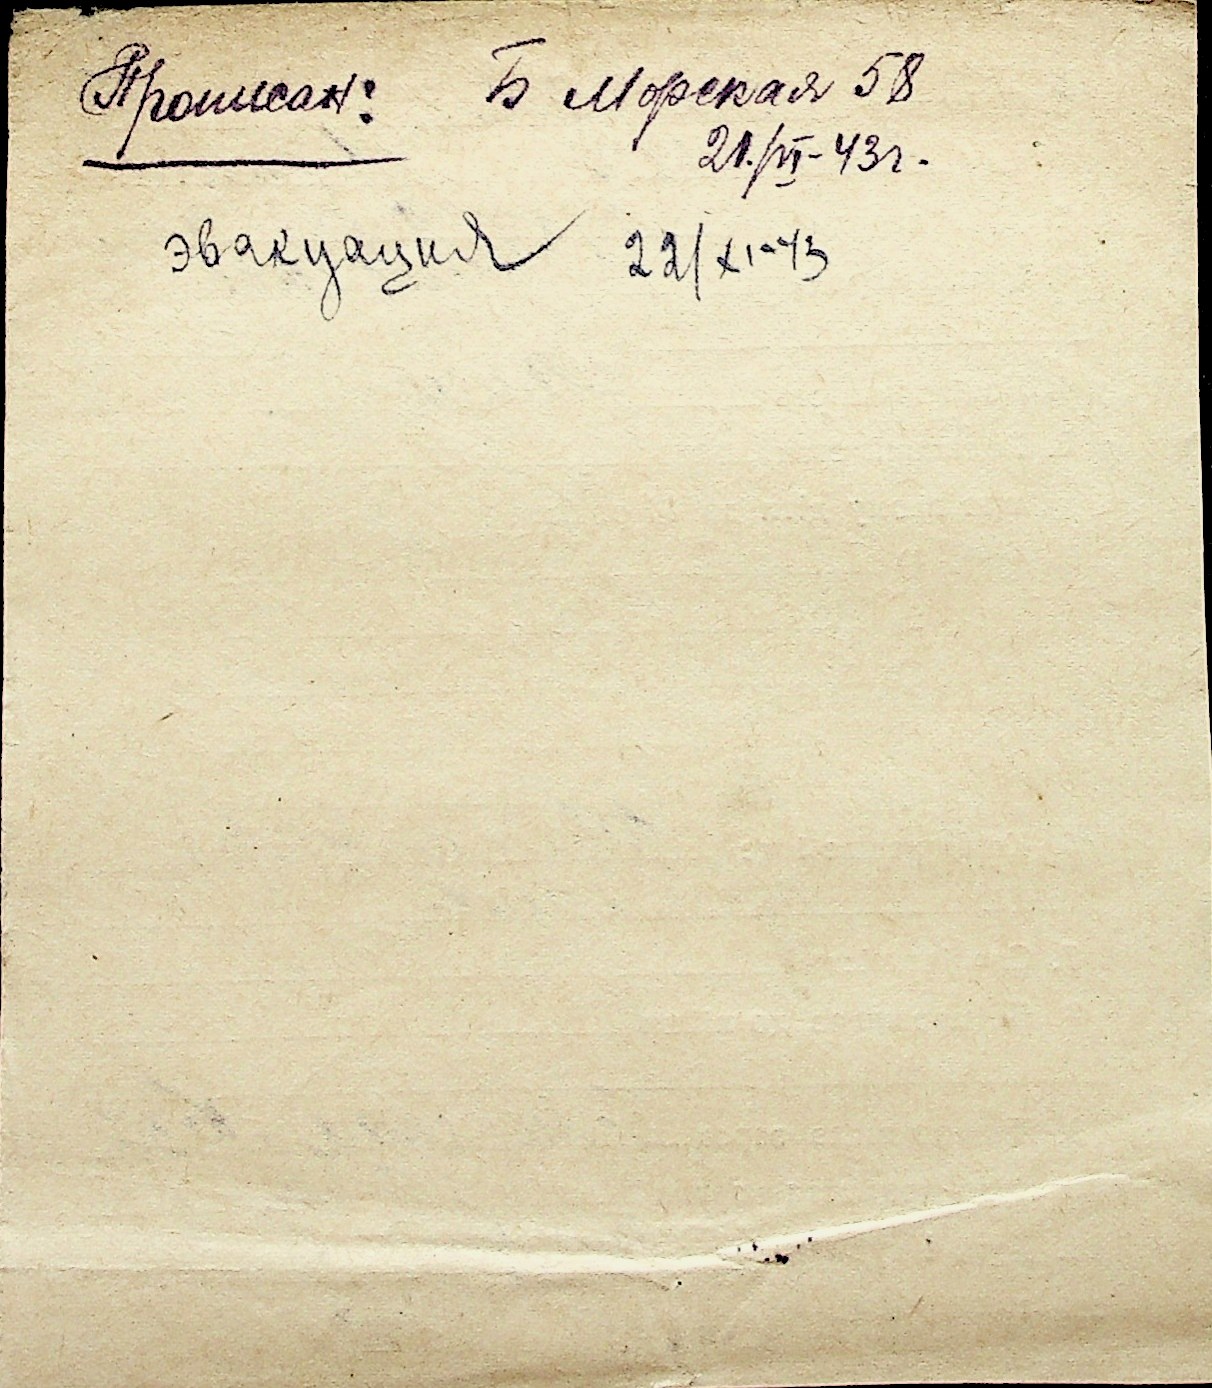 Прописан: Б Морская 58
21./VI-43г.
эвакуация 22/XI-43